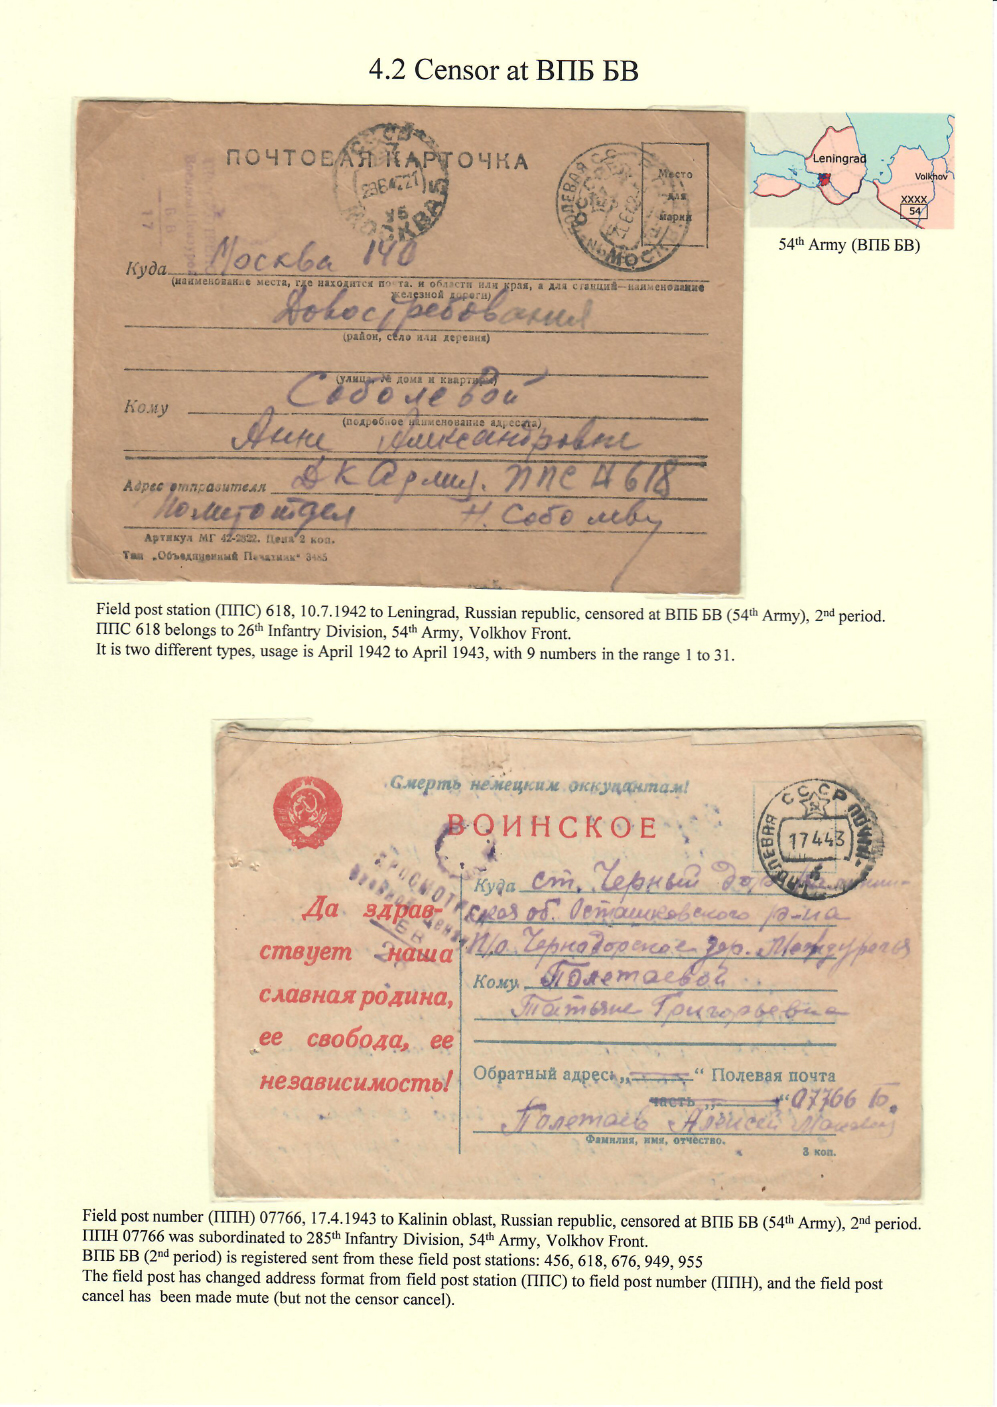 4.2 Censor at ВПБ БВ
ПОЧТОВАЯ КАРТОЧКА
СССР
МОСКВА
ПОЛЕВАЯ
Место
для
марки
БВ
17
Leningrad
Volkhov
XXXX
54
54th Army (ВПБ БВ)
Куда Москва 140
(наименование места, где находится почта, и области или края, а для станций—наименование
железной дороги)
Довостребования
(район, село или деревня)
(улица, № дома и квартиры)
Соболевой
Кому
(подробное наименование адресата)
Анне Александровне
Адрес отправителя ДК Армия. ППС № 618
Политотдел Н. Соболеву
Артикул МГ 42-2822. Цена 2 коп.
Тип „Объединенный Печатник" 3485
Field post station (ППС) 618, 10.7.1942 to Leningrad, Russian republic, censored at ВПБ БВ (54th Army), 2nd period.
ППС 618 belongs to 26th Infantry Division, 54th Army, Volkhov Front.
It is two different types, usage is April 1942 to April 1943, with 9 numbers in the range 1 to 31.
Смерть немецким оккупантам!
ВОИНСКОЕ
СССР
ПОЛЕВАЯ
17 4 43
ПРОСМОТРЕНО
БВ
Да здрав-
ствует наша
славная родина,
ее свобода, ее
независимость!
Куда ст. Черный дор
ская об. Осташковского р-на
п/о Чернодорское дер. Междуречья
Кому Полетаевой
Татьяне Григорьевне
Обратный адрес: „ " Полевая почта
часть „ " 07766 Б.
Полетаев Алексей
Фамилия, имя, отчество.
3 коп.
Field post number (ППН) 07766, 17.4.1943 to Kalinin oblast, Russian republic, censored at ВПБ БВ (54th Army), 2nd period.
ППН 07766 was subordinated to 285th Infantry Division, 54th Army, Volkhov Front.
ВПБ БВ (2nd period) is registered sent from these field post stations: 456, 618, 676, 949, 955
The field post has changed address format from field post station (ППС) to field post number (ППН), and the field post
cancel has been made mute (but not the censor cancel).